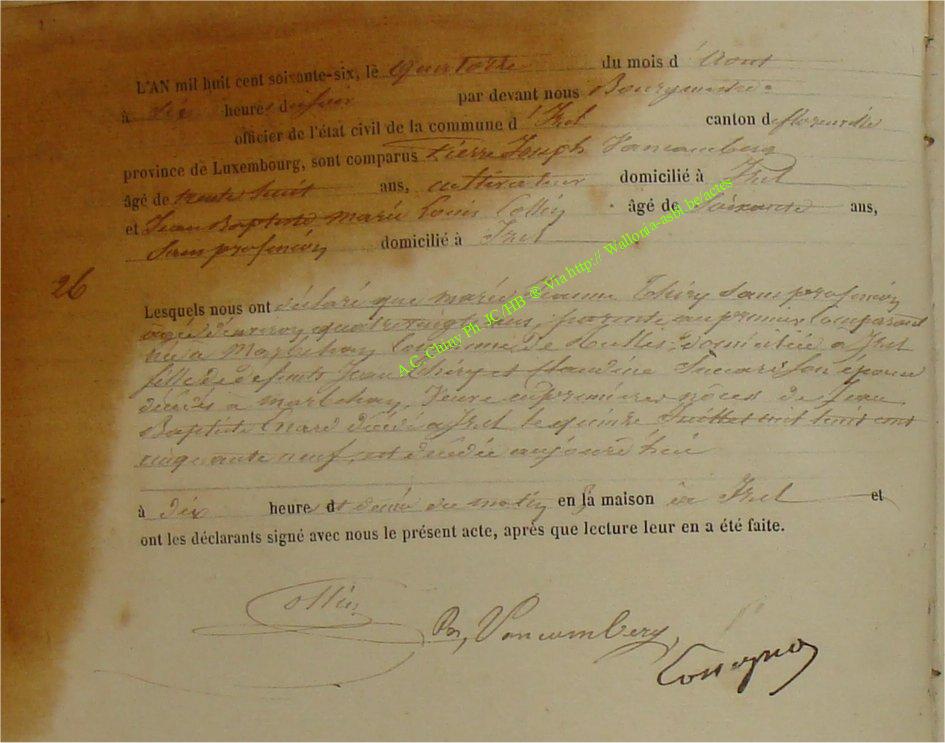 L'AN mil huit cent soixante-six, le quatorze du mois d'Aout
à six heures du soir par devant nous Bourgmestre
officier de l'état civil de la commune d'Izel canton de florenville
province de Luxembourg, sont comparus Pierre Joseph Vancamberg
âgé de trente huit ans, cultivateur domicilié à Izel
et Jean Baptiste marie Louis Collin âgé de soixante ans,
sans profession domicilié à Izel
26
Lesquels nous ont déclaré que marie Jeanne Thiry sans profession
agée d'environ quatre vingt ans, parente au premier comparant
née à Marbehay Commune de domiciliée à Izel
fille de defunts Jean Thiry et Claudine son épouse
décédés à marbehay, Veuve en premières nôces de Jean
Baptiste décédé à Izel le quinze Juillet mil huit cent
cinquante neuf, est décédée aujourd'hui
à dix heure et demie du matin en sa maison à Izel et
ont les déclarants signé avec nous le présent acte, après que lecture leur en a été faite.
Collin
Vancamberg
A.C. Chiny Ph. JC/HB ® Via http:// Wallonia-asbl.be/actes